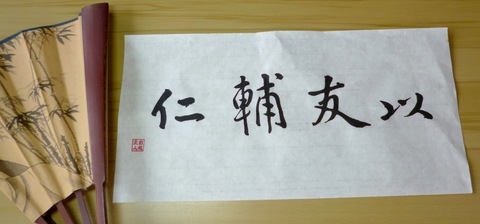 以友輔仁